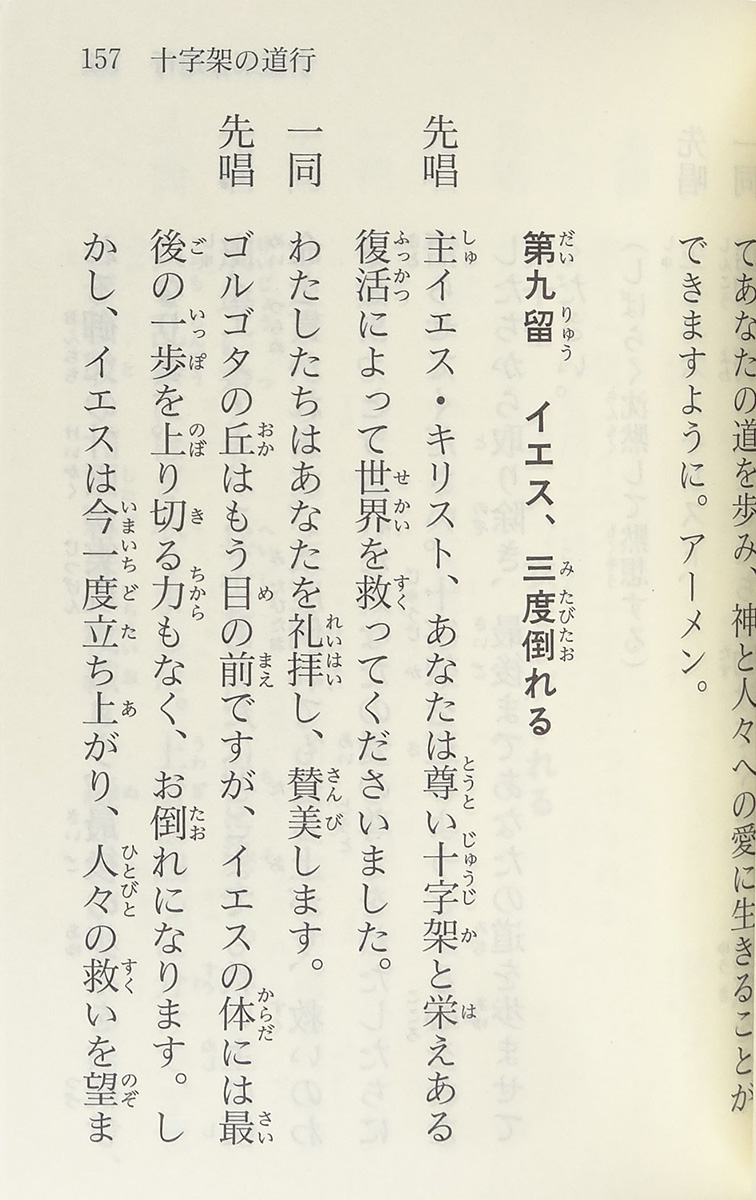 157 十字架の道行
てあなたの道を歩み、神と人々への愛に生きることが
できますように。アーメン。
第九留 イエス、三度倒れる
先唱 主イエス・キリスト、あなたは尊い十字架と栄えある
復活によって世界を救ってくださいました。
一同 わたしたちはあなたを礼拝し、賛美します。
先唱 ゴルゴタの丘はもう目の前ですが、イエスの体には最
後の一歩を上り切る力もなく、お倒れになります。し
かし、イエスは今一度立ち上がり、人々の救いを望ま